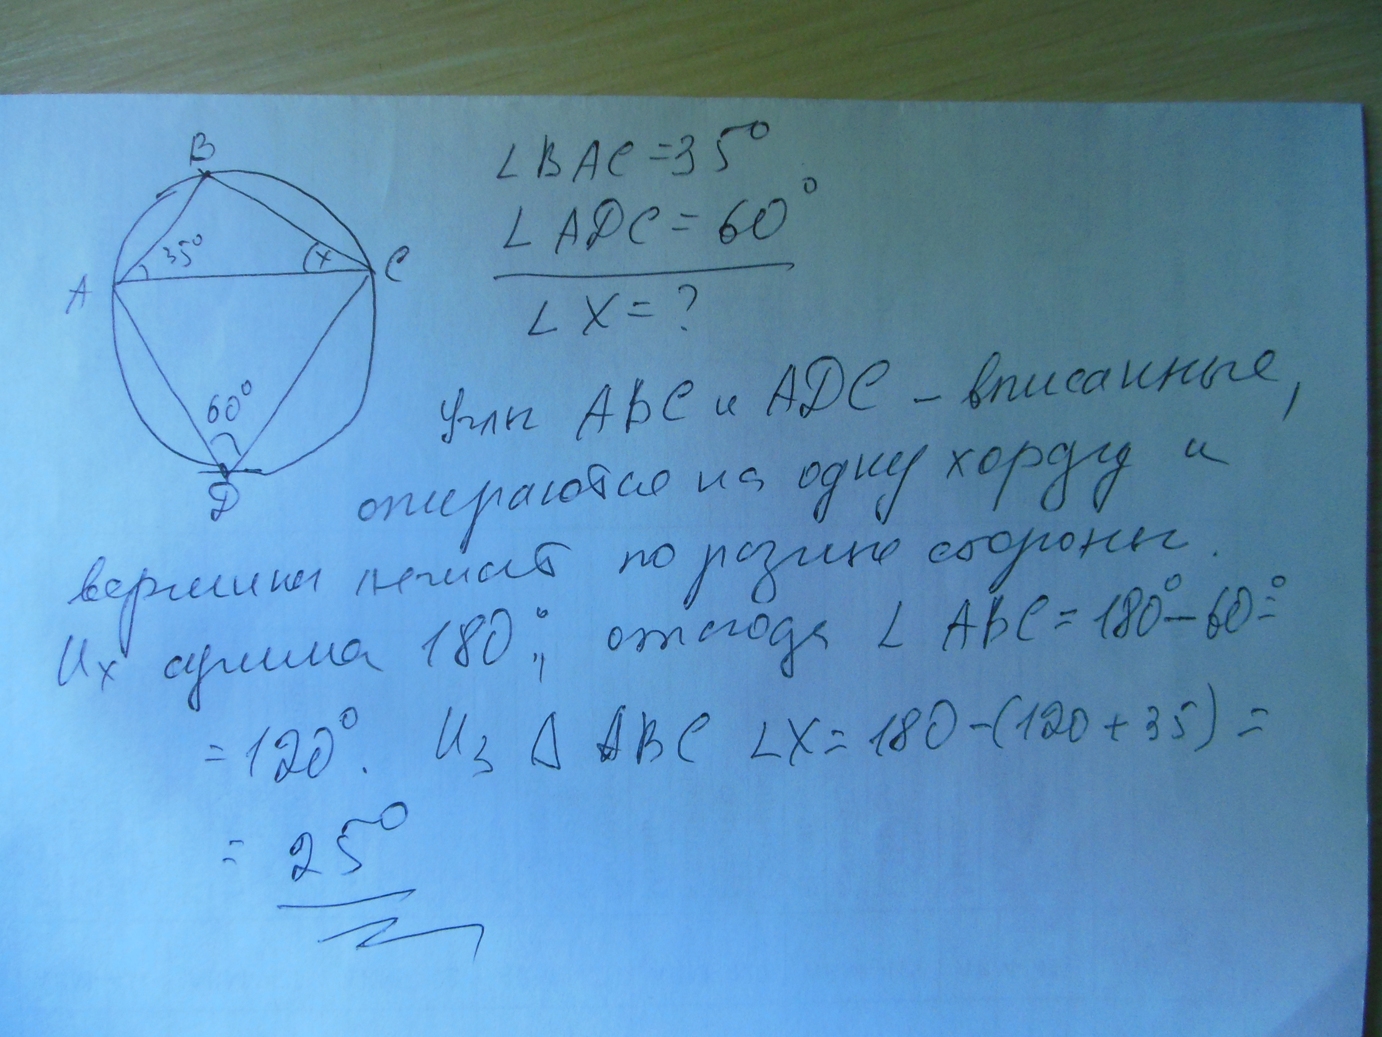 B
35°
x
A
C
60°
D
∠BAC=35°
∠ADC=60°
∠X=?
Углы ABC и ADC – вписанные,
опираются на одну хорду и
вершины лежат по разные стороны.
Их сумма 180°, отсюда ∠ABC=180°–60°=
=120°. Из Δ ABC ∠X=180–(120+35)=
=25°